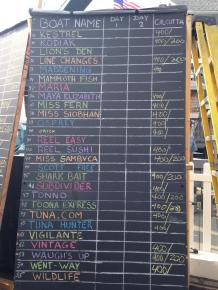 BOAT NAME DAY DAY 2 CALCUTTA
KESTREL 400/
KODIAK 400/200
LION'S DEN
LINE CHANGES 400/
MADDENING
MAMMOTH FISH
MARIA
MAYA ELIZABETH 400/
MISS FERN 400/
MISS SIOBHAN 400/
OSPREY
REEL EASY
REEL SUSHI 400/
MISS SAMBVCA 400/200
SHARK BAIT
SUBDIVIDER
TONNO 400/200
TOONA EXPRESS
TUNA.COM 400/
TUNA HUNTER
VIGILANTE
VINTAGE 400/
WAUGH'S UP
WENT-WAY 400/
WILDLIFE